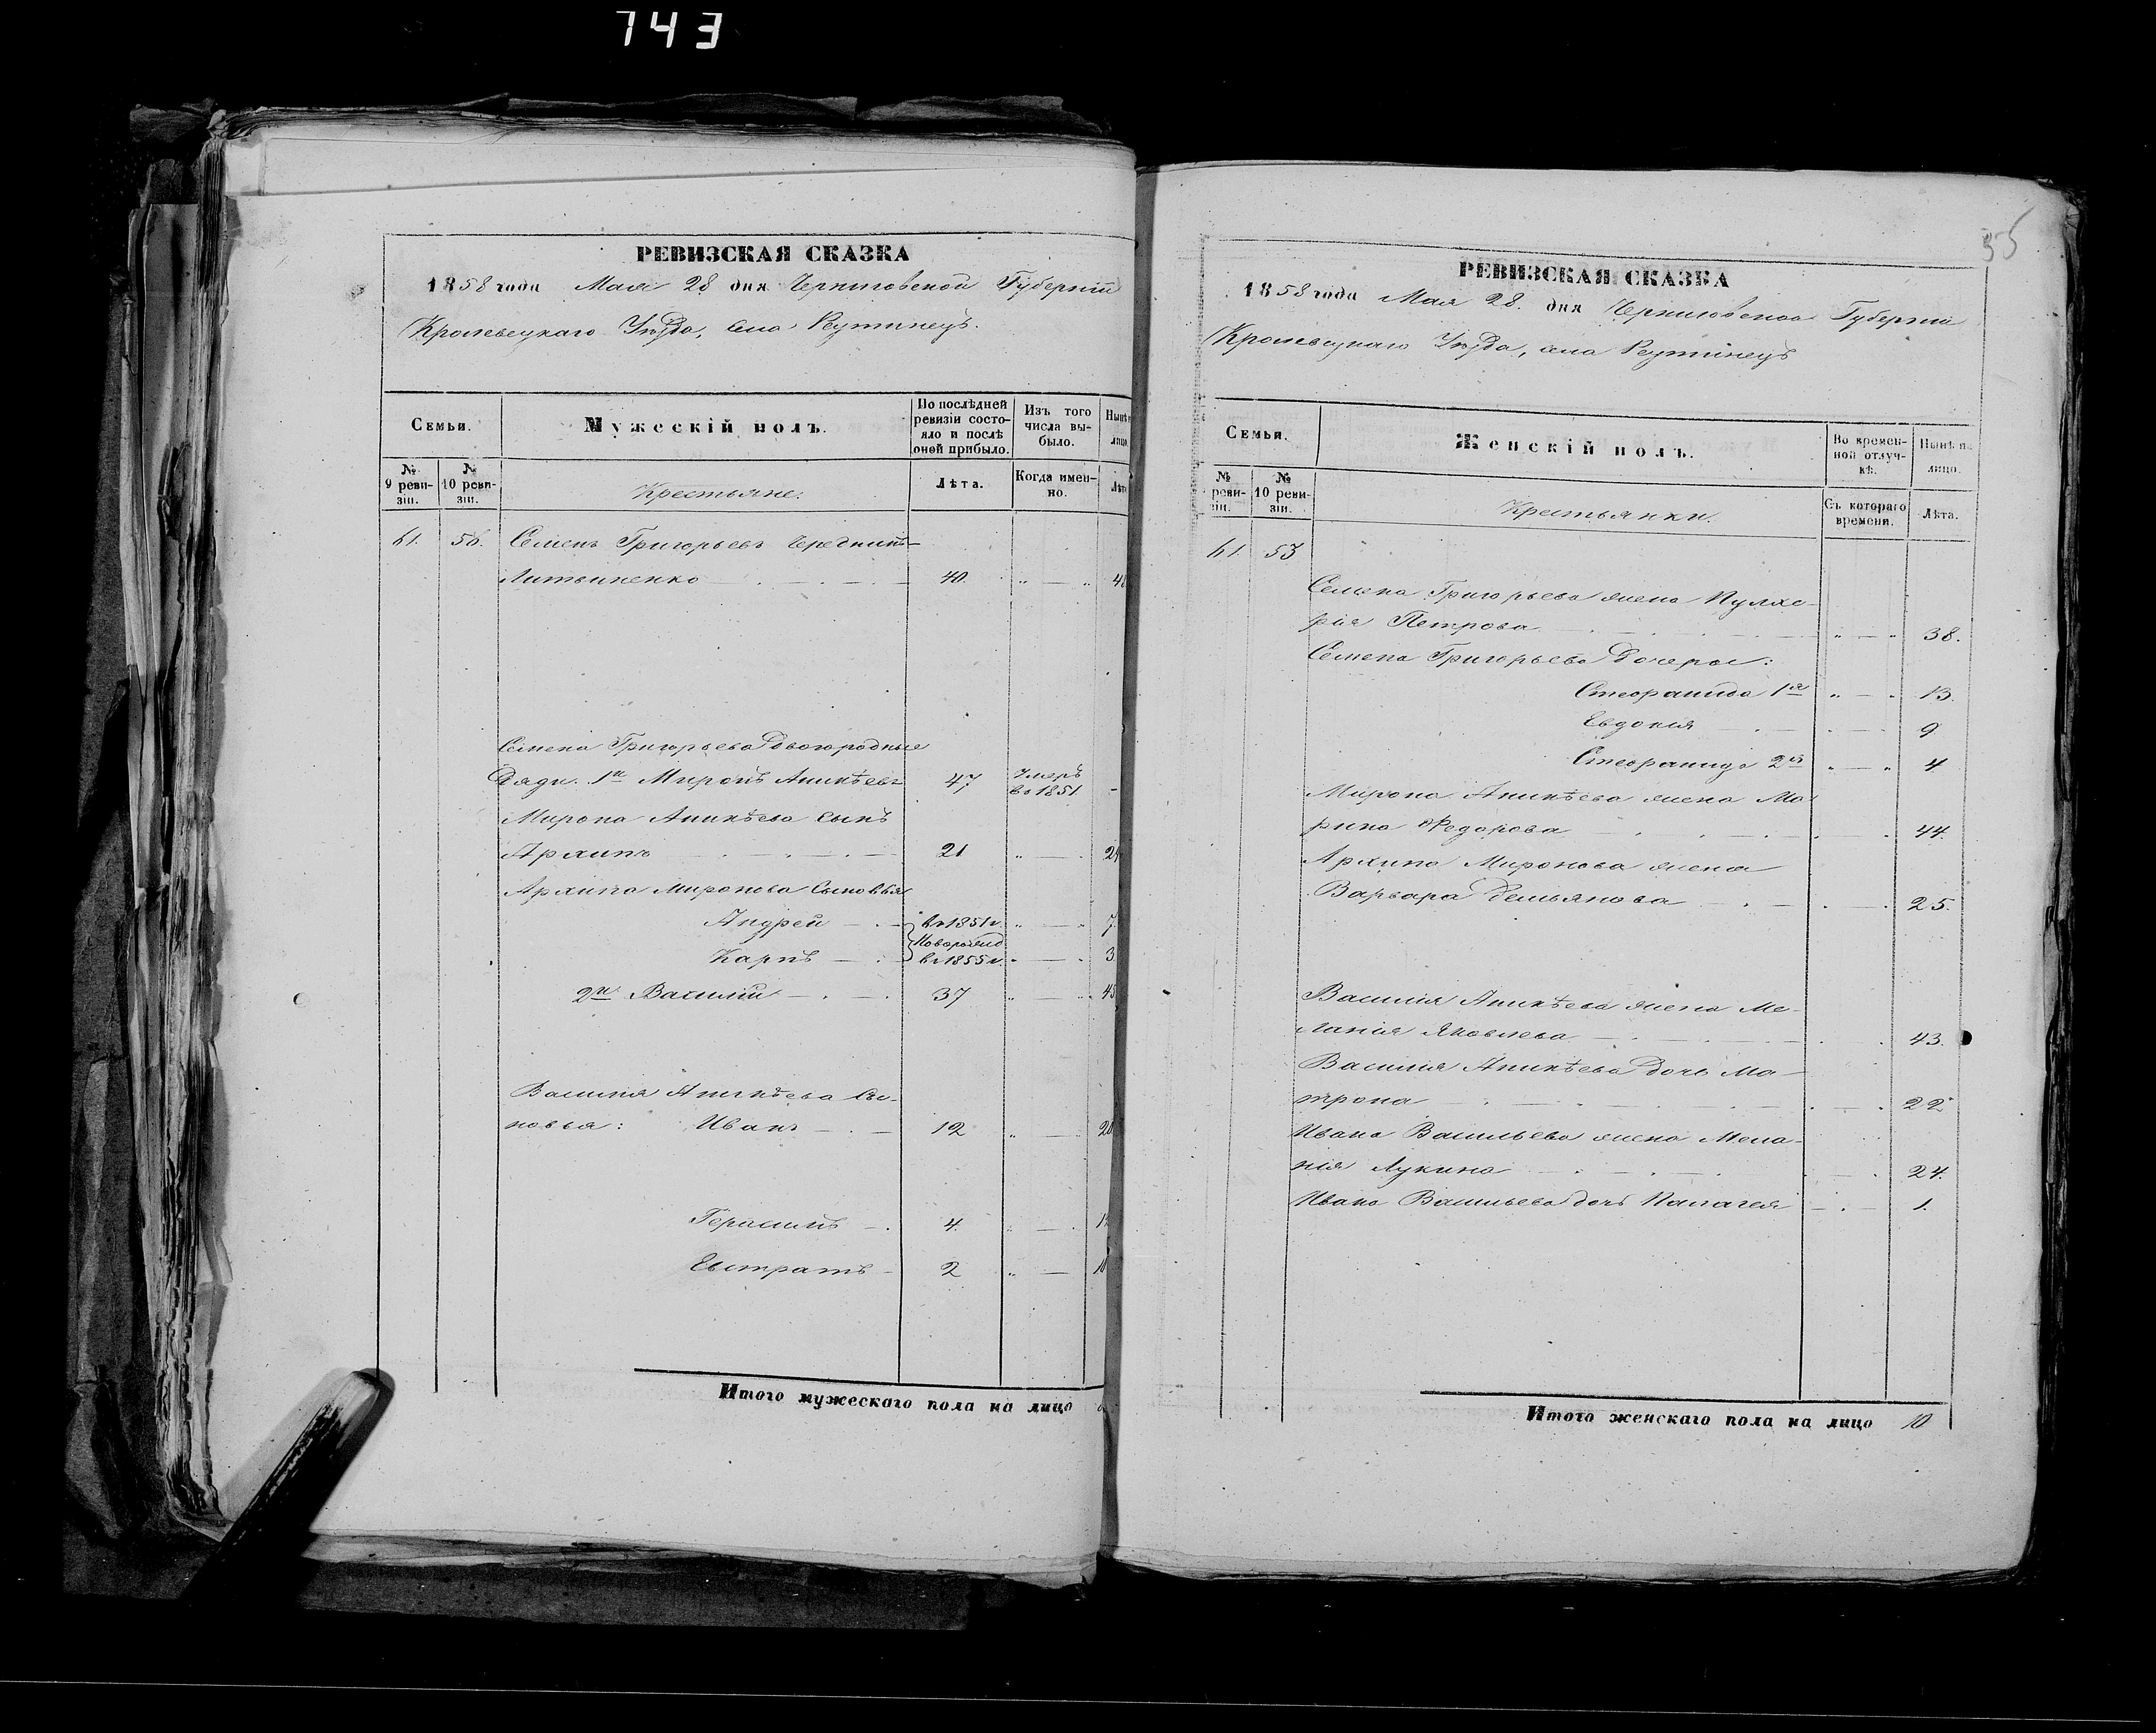 743
РЕВИЗСКАЯ СКАЗКА
1858 года Мая 28 дня Черниговской Губерніи
Кролевецкаго Уѣзда, села Реутинецъ.
Семьи.
Мужескій полъ.
По послѣдней ревизіи состояло и послѣ оной прибыло.
Изъ того числа выбыло.
Нынѣ
лицо.
№ 9 ревизіи.
№ 10 ревизіи.
Крестьяне:
Лѣта.
Когда именно.
Лѣт
61. 56. Семенъ Григорьевъ
Литвиненко 40. 48
Семена Григорьева двоюродные
Дяди: 1й Миронъ Аникѣевъ 47 Умеръ въ 1851
Мирона Аникѣева Сынъ
Архипъ 21 29
Архипа Миронова Сыновья
Андрей въ 1851г. 7
Новорожд
Карпъ въ 1855г. 3
2й Василій 37 45
Василія Аникѣева Сы-
новья: Иванъ 12 20
Герасимъ 4. 12
Евстратъ 2 10
Итого мужескаго пола на лицо
35
РЕВИЗСКАЯ СКАЗКА
1858 года Мая 28. дня Черниговской Губерніи
Кролевецкаго Уѣзда, села Реутинецъ
Семьи.
Женскій полъ.
Во временной отлучкѣ.
Нынѣ н.
лицо.
№ реви-зіи.
№ 10 ревизіи.
Крестьянки.
Съ котораго времени.
Лѣта.
61. 53
Семена Григорьева жена Пулхе-
рія Петрова 38.
Семена Григорьева дочери:
Стефанида 1я 13.
Евдокія 9
Стефанида 2я 4.
Мирона Аникѣева жена Ма-
рина Федорова 44.
Архипа Миронова жена
Варвара Демьянова 25.
Василія Аникѣева жена Ме-
ланія Яковлева 43.
Василія Аникѣева дочь Ма-
трона 22
Ивана Васильева жена Мела-
нія Лукина 24.
Ивана Васильева дочь Палагея 1.
Итого женскаго пола на лицо 10